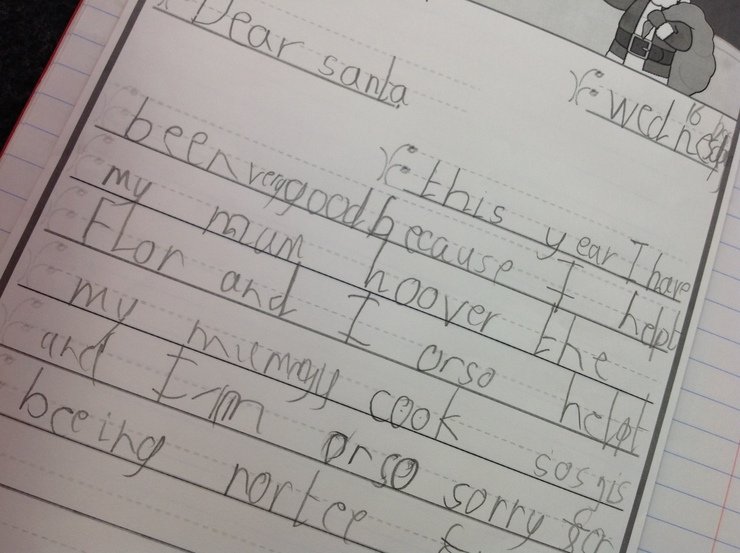 Dear santa
wednesday
this year I have
been very good because I helpt
my mum hoover the
Flor and I orso helpt
my mummy cook sosgis
and I'm orso sorry for
beeing nortee